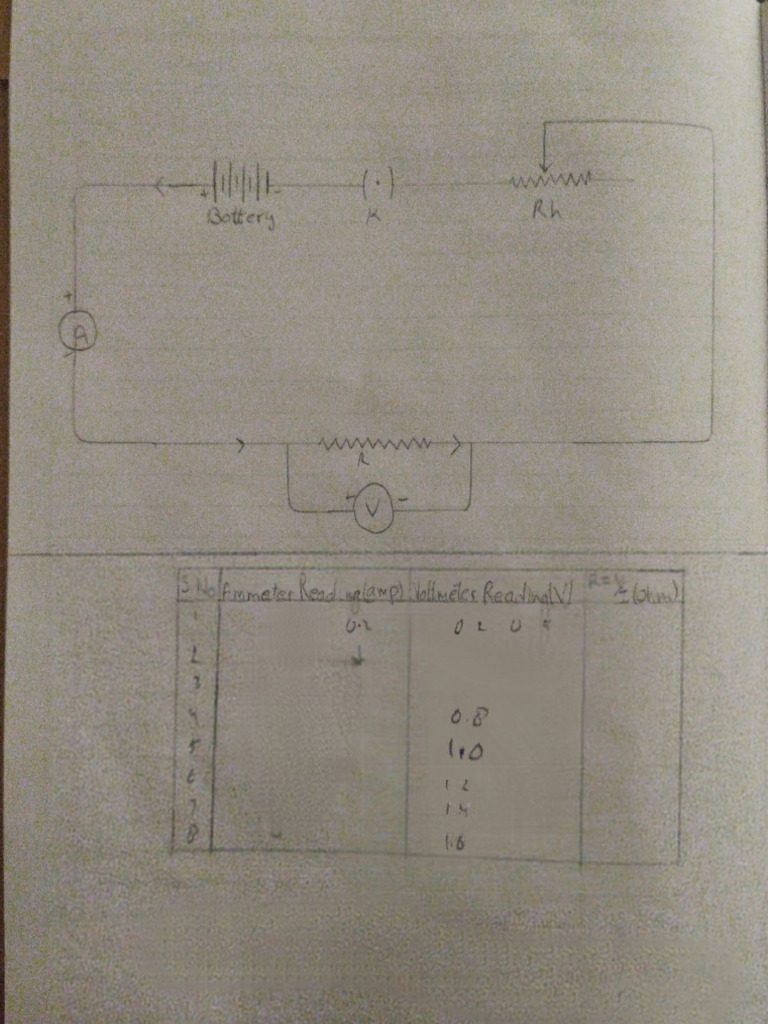 + -
Battery
K
Rh
+
A
R
+ V -
S.No Ammeter Reading(amp) Voltmeter Reading(V) R=V/I (Ohm)
1 0.2
2
3
4 0.8
5 1.0
6 1.2
7 1.4
8 1.6